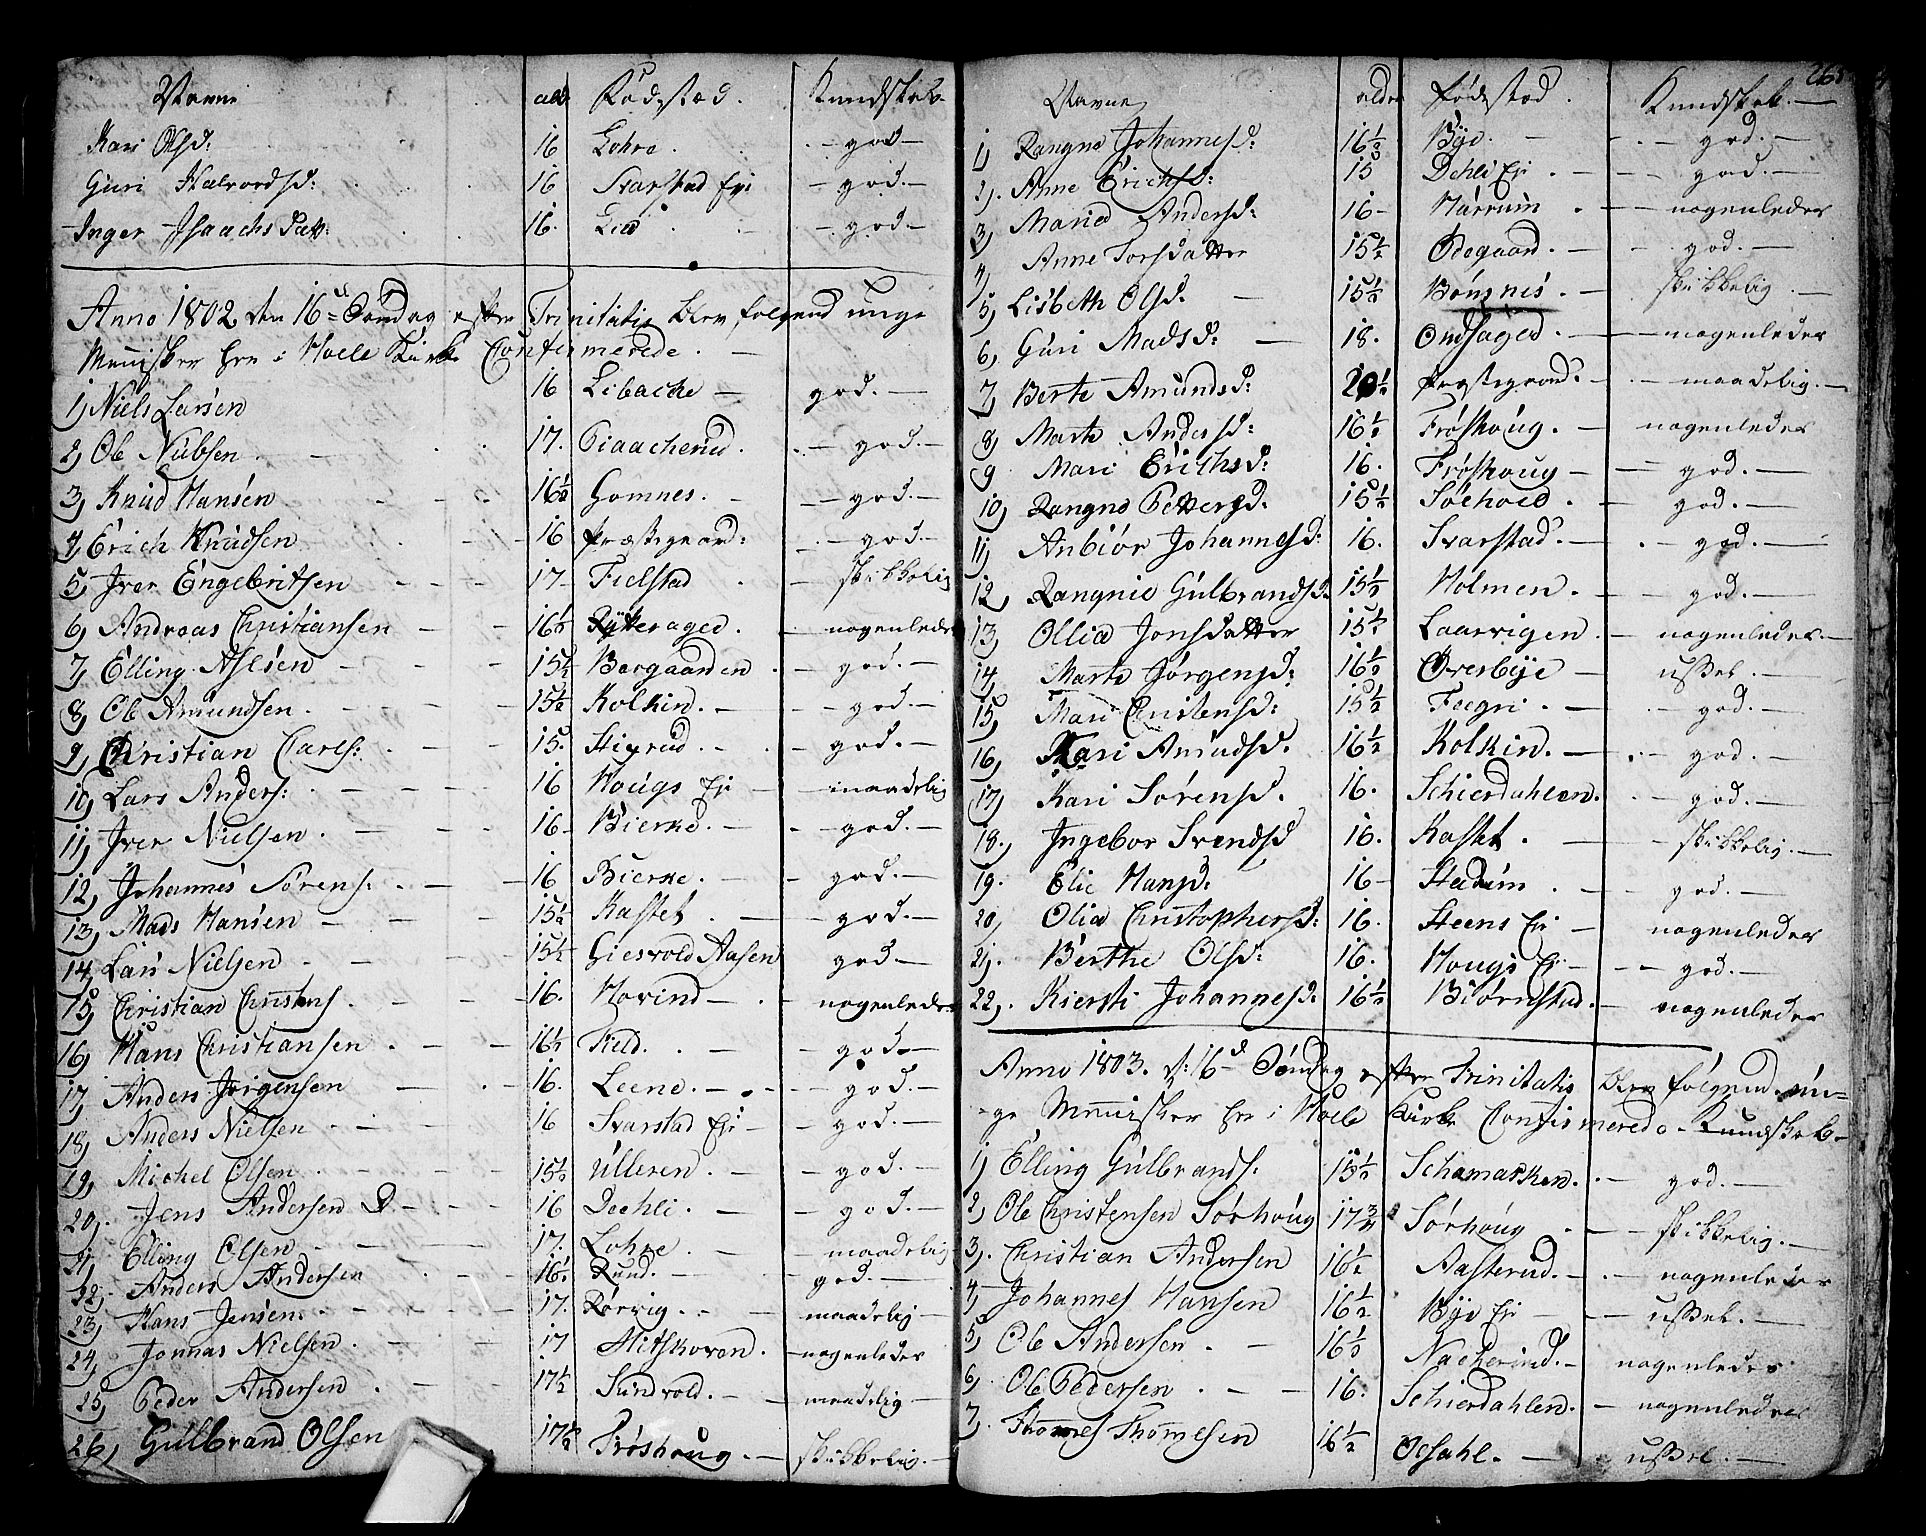 Navne ald Fødested. Kundskab.
Kari Olsd: 16 Lohre. god
Guri Halvordsd: 16 Svarstad Eje god.
Inger Isaachs Datt: 16. Lid god.
Anno 1802 den 16de Søndag efter Trinitatis blev følgend unge
Mennisker her i Hoele Kirke Confirmerede.
1, Niels Larsen 16 Libache god.
2, Ole Nubsen 17. Piaacherud god.
3, Knud Hansen 16½ Gomnes. god.
4, Erich Knudsen 16 Præstegaard: god.
5, Iver Engebritsen 17 Fielstad skikkelig
6, Andreas Christiansen 16½ Rytteraged. nogenleder
7, Elling Aslesen 15½ Borgaarden god.
8, Ole Amundsen 15½ Kolkin. god.
9, Christian Carls: 15. Stigrud. god.
10, Lars Anders: 16 Hougs Eje maadelig
11, Iver Nielsen 16 Bierke. god.
12, Johannes Sørens: 16 Bierke. god.
13, Mads Hansen 15½ Rastet god.
14, Lars Nielsen 15½ Giesvold Aasen god.
15, Christian Christens. 16. Hovind nogenleder
16, Hans Christiansen 16½ Field. god.
17, Anders Jørgensen 16. Leene. god.
18, Anders Nielsen 16 Svarstad Eje god.
19, Michel Olsen 15½ Ulleren. god.
20, Jens Andersen D 16 Dechli. god.
21, Elling Olsen 17. Lohre. maadelig
22, Anders Andersen 16½ Rund. god.
23, Hans Jensen. 17. Rørvig. maadelig
24, Jonnas Nielsen 17 Hitskoven nogenleder
25, Peder Andersen 17½ Sundvold. maadelig
26, Gulbrand Olsen 17½ Frøshoug. skikkelig.
Navne alder Fødested. Kundskab.
1, Rangne Johannesd: 16½ Bye. god.
2, Anne Erichsd: 15 Dehli Eje god.
3, Maria Andersd: 16 Harrum nogenleder
4, Anne Torsdatter 15½ Odegaard. god.
5, Lisbeth Olsd. 15½ Bønsnes. skikkelig
6, Guri Madsd: 18. Ondsaged nogenleder
7, Berte Amundsd: 20½ Præstegaard: maadelig.
8, Marte Andersd: 16½ Frøshoug. nogenleder
9. Mari Erichsd: 16. Frøshoug god.
10, Rangne Pettersd. 15½ Solhoed god.
11, Anbiør Johannesd: 16. Svarstad. god.
12, Rangnie Gulbrandsd. 15½ Holmen. god.
13, Ollia Jonsdatter 15½ Laarvigen nogenleder.
14, Marte Jørgensd: 16½ Øverbye ussel.
15, Mari Christensd: 15½ Fægri. god.
16, Kari Amundsd. 16½ Kolkin. god.
17, Kari Sørensd. 16. Schierdahlen. god.
18., Ingebor Svendsd 16. Rastet. skikkelig.
19. Elie Hansd. 16 Stadum god.
20, Olia Christophersd: 16. Steens Eje nogenleder
21, Berthe Olsd: 16. Hougs Eje god.
22,. Kiersti Johannesd: 16½ Biørnstad. nogenleder
Anno 1803. d: 16de Søndag efter Trinitatis blev følgend un-
ge Mennisker her i Hoele Kirke Confirmerede. Kundskab.
1, Elling Gulbrands. 15½ Schamarken. god.
2, Ole Christensen Sørhoug 17¾ Sørhoug skikkelig.
3,. Christian Andersen 16½ Aasterud. nogenleder
4, Johannes Hansen 16½ Bye Eje ussel.
5, Ole Andersen. 16½ Nacherud. nogenleder
6, Ole Pedersen. 16. Schierdahlen. nogenleder
7,. Thomes Thomesen 16½ Opsahl. ussel.